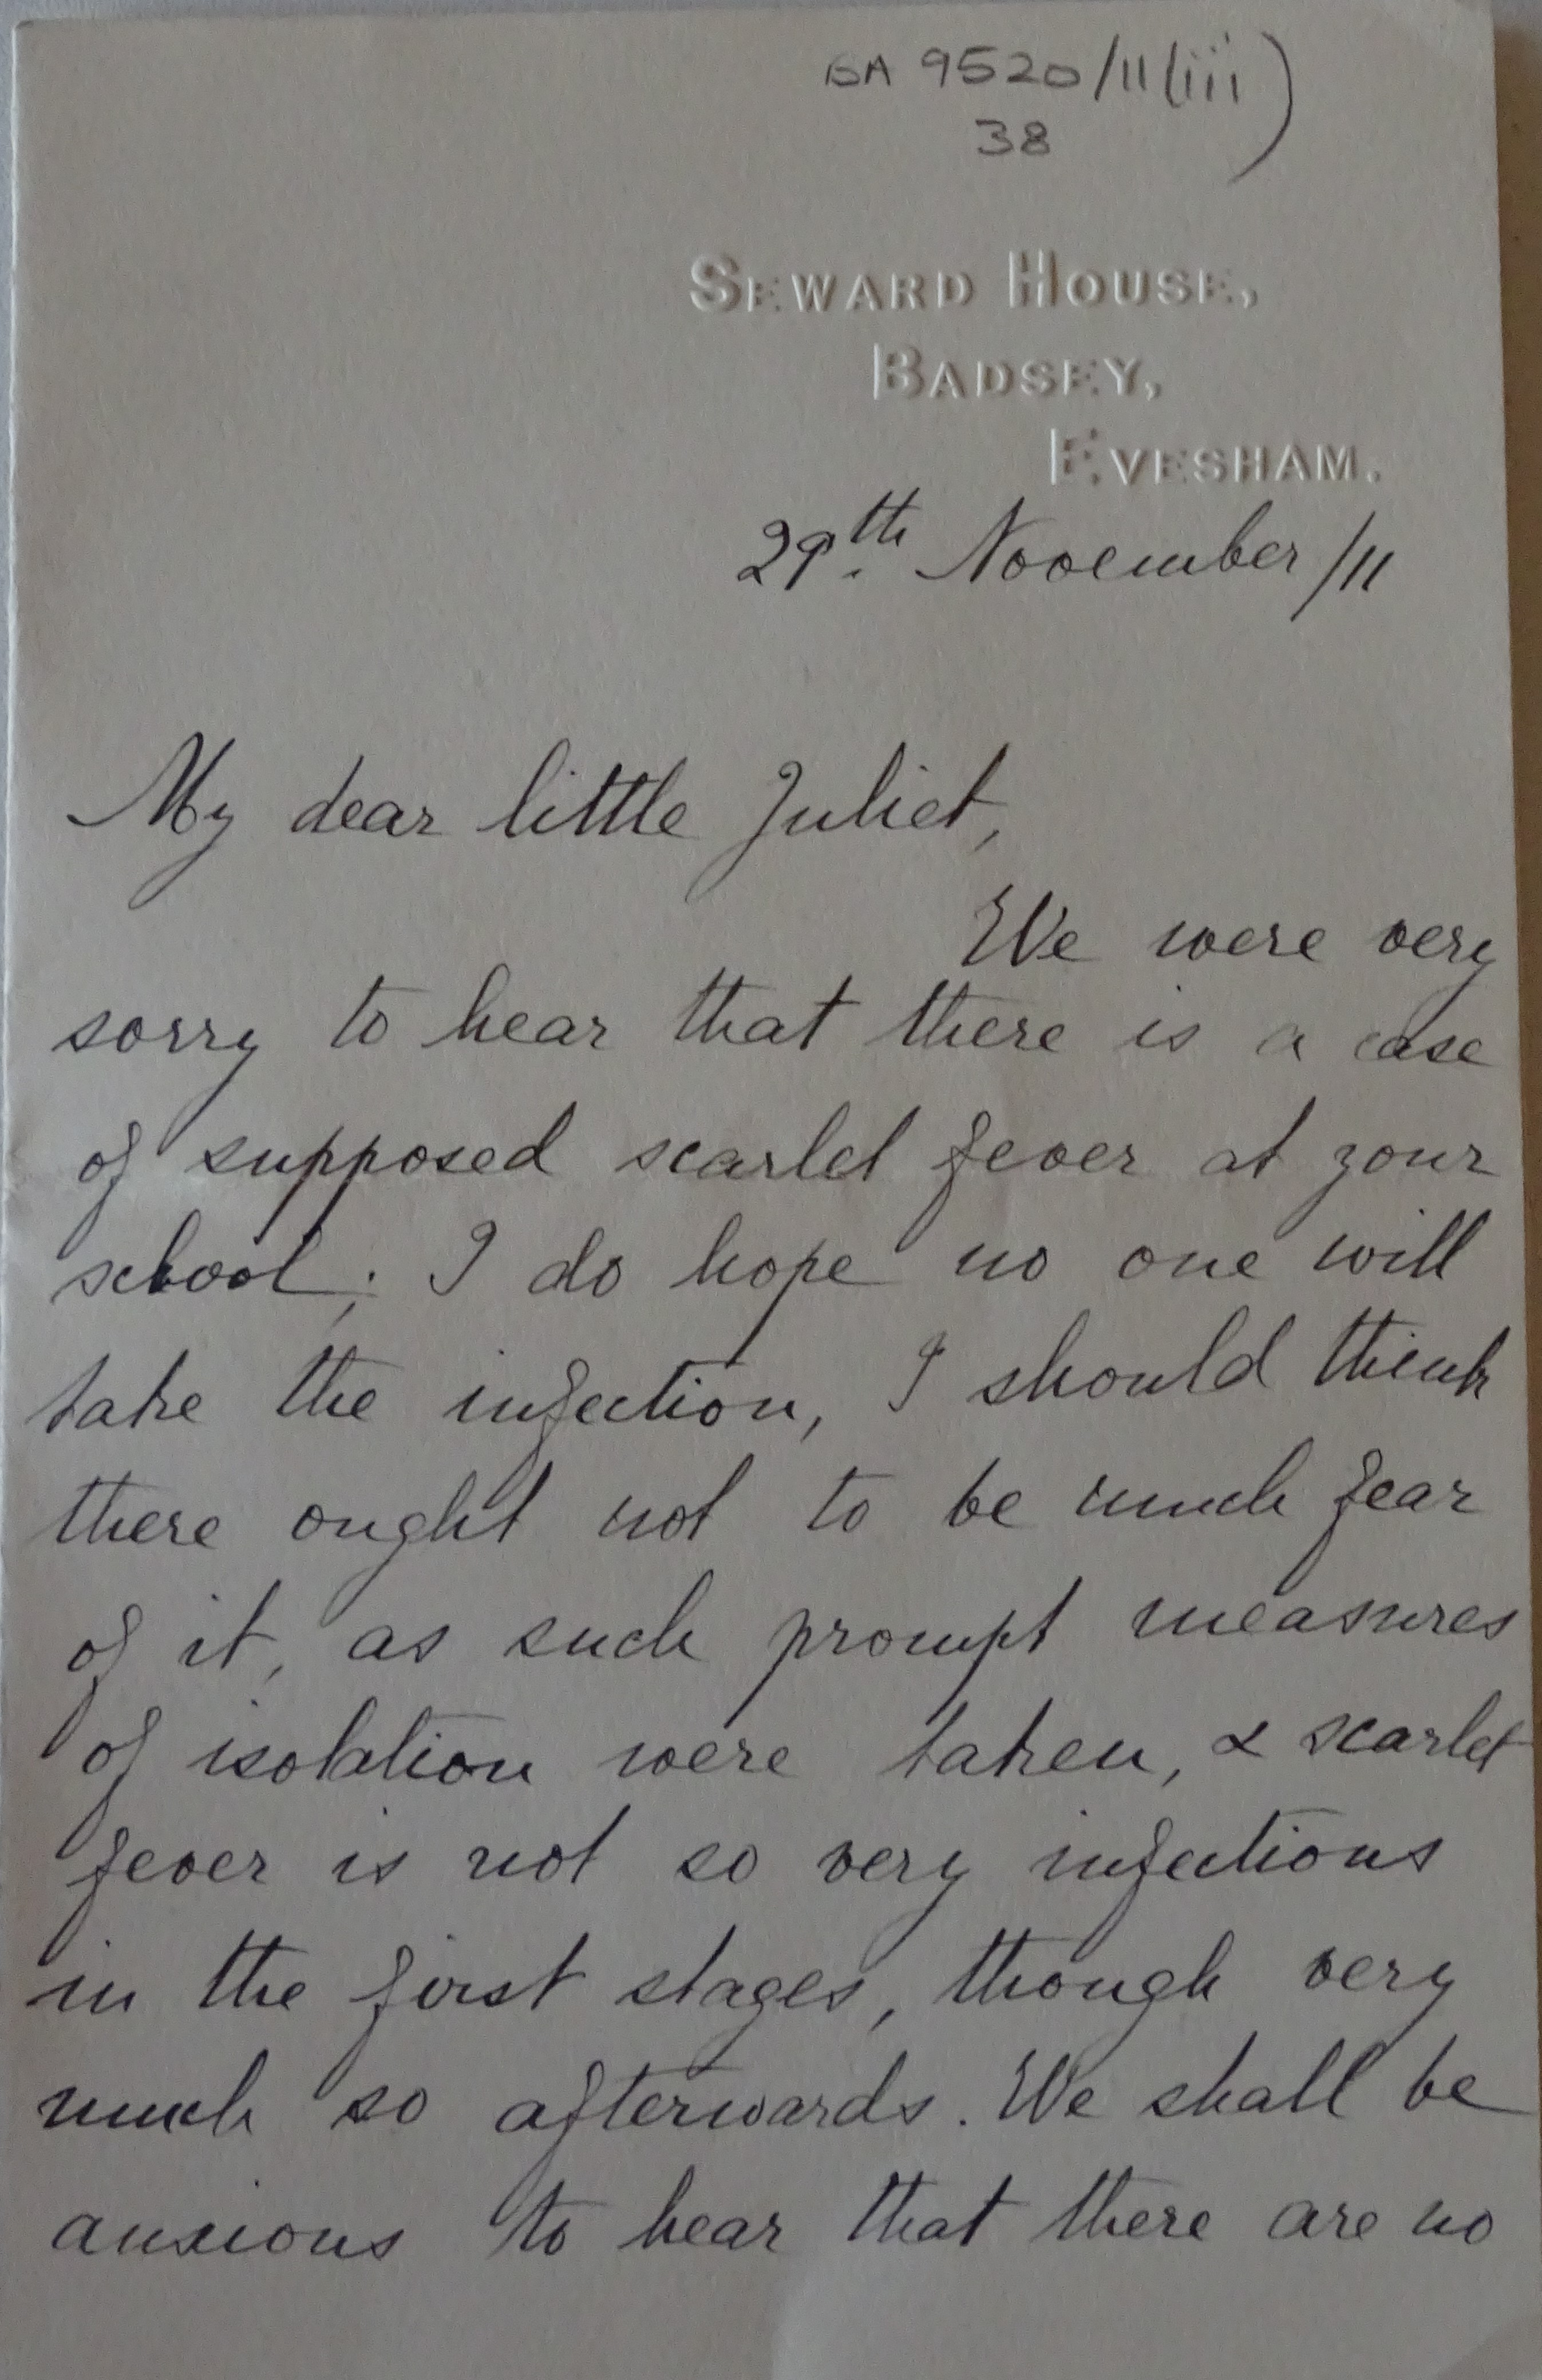 BA 9520/11(iii)
38
SEWARD HOUSE,
BADSEY,
EVESHAM.
29th November /11
My dear little Juliet,
We were very
sorry to hear that there is a case
of supposed scarlet fever at your
school; I do hope no one will
take the infection, I should think
there ought not to be much fear
of it, as such prompt measures
of isolation were taken, & scarlet
fever is not so very infectious
in the first stages, though very
much so afterwards. We shall be
anxious to hear that there are no